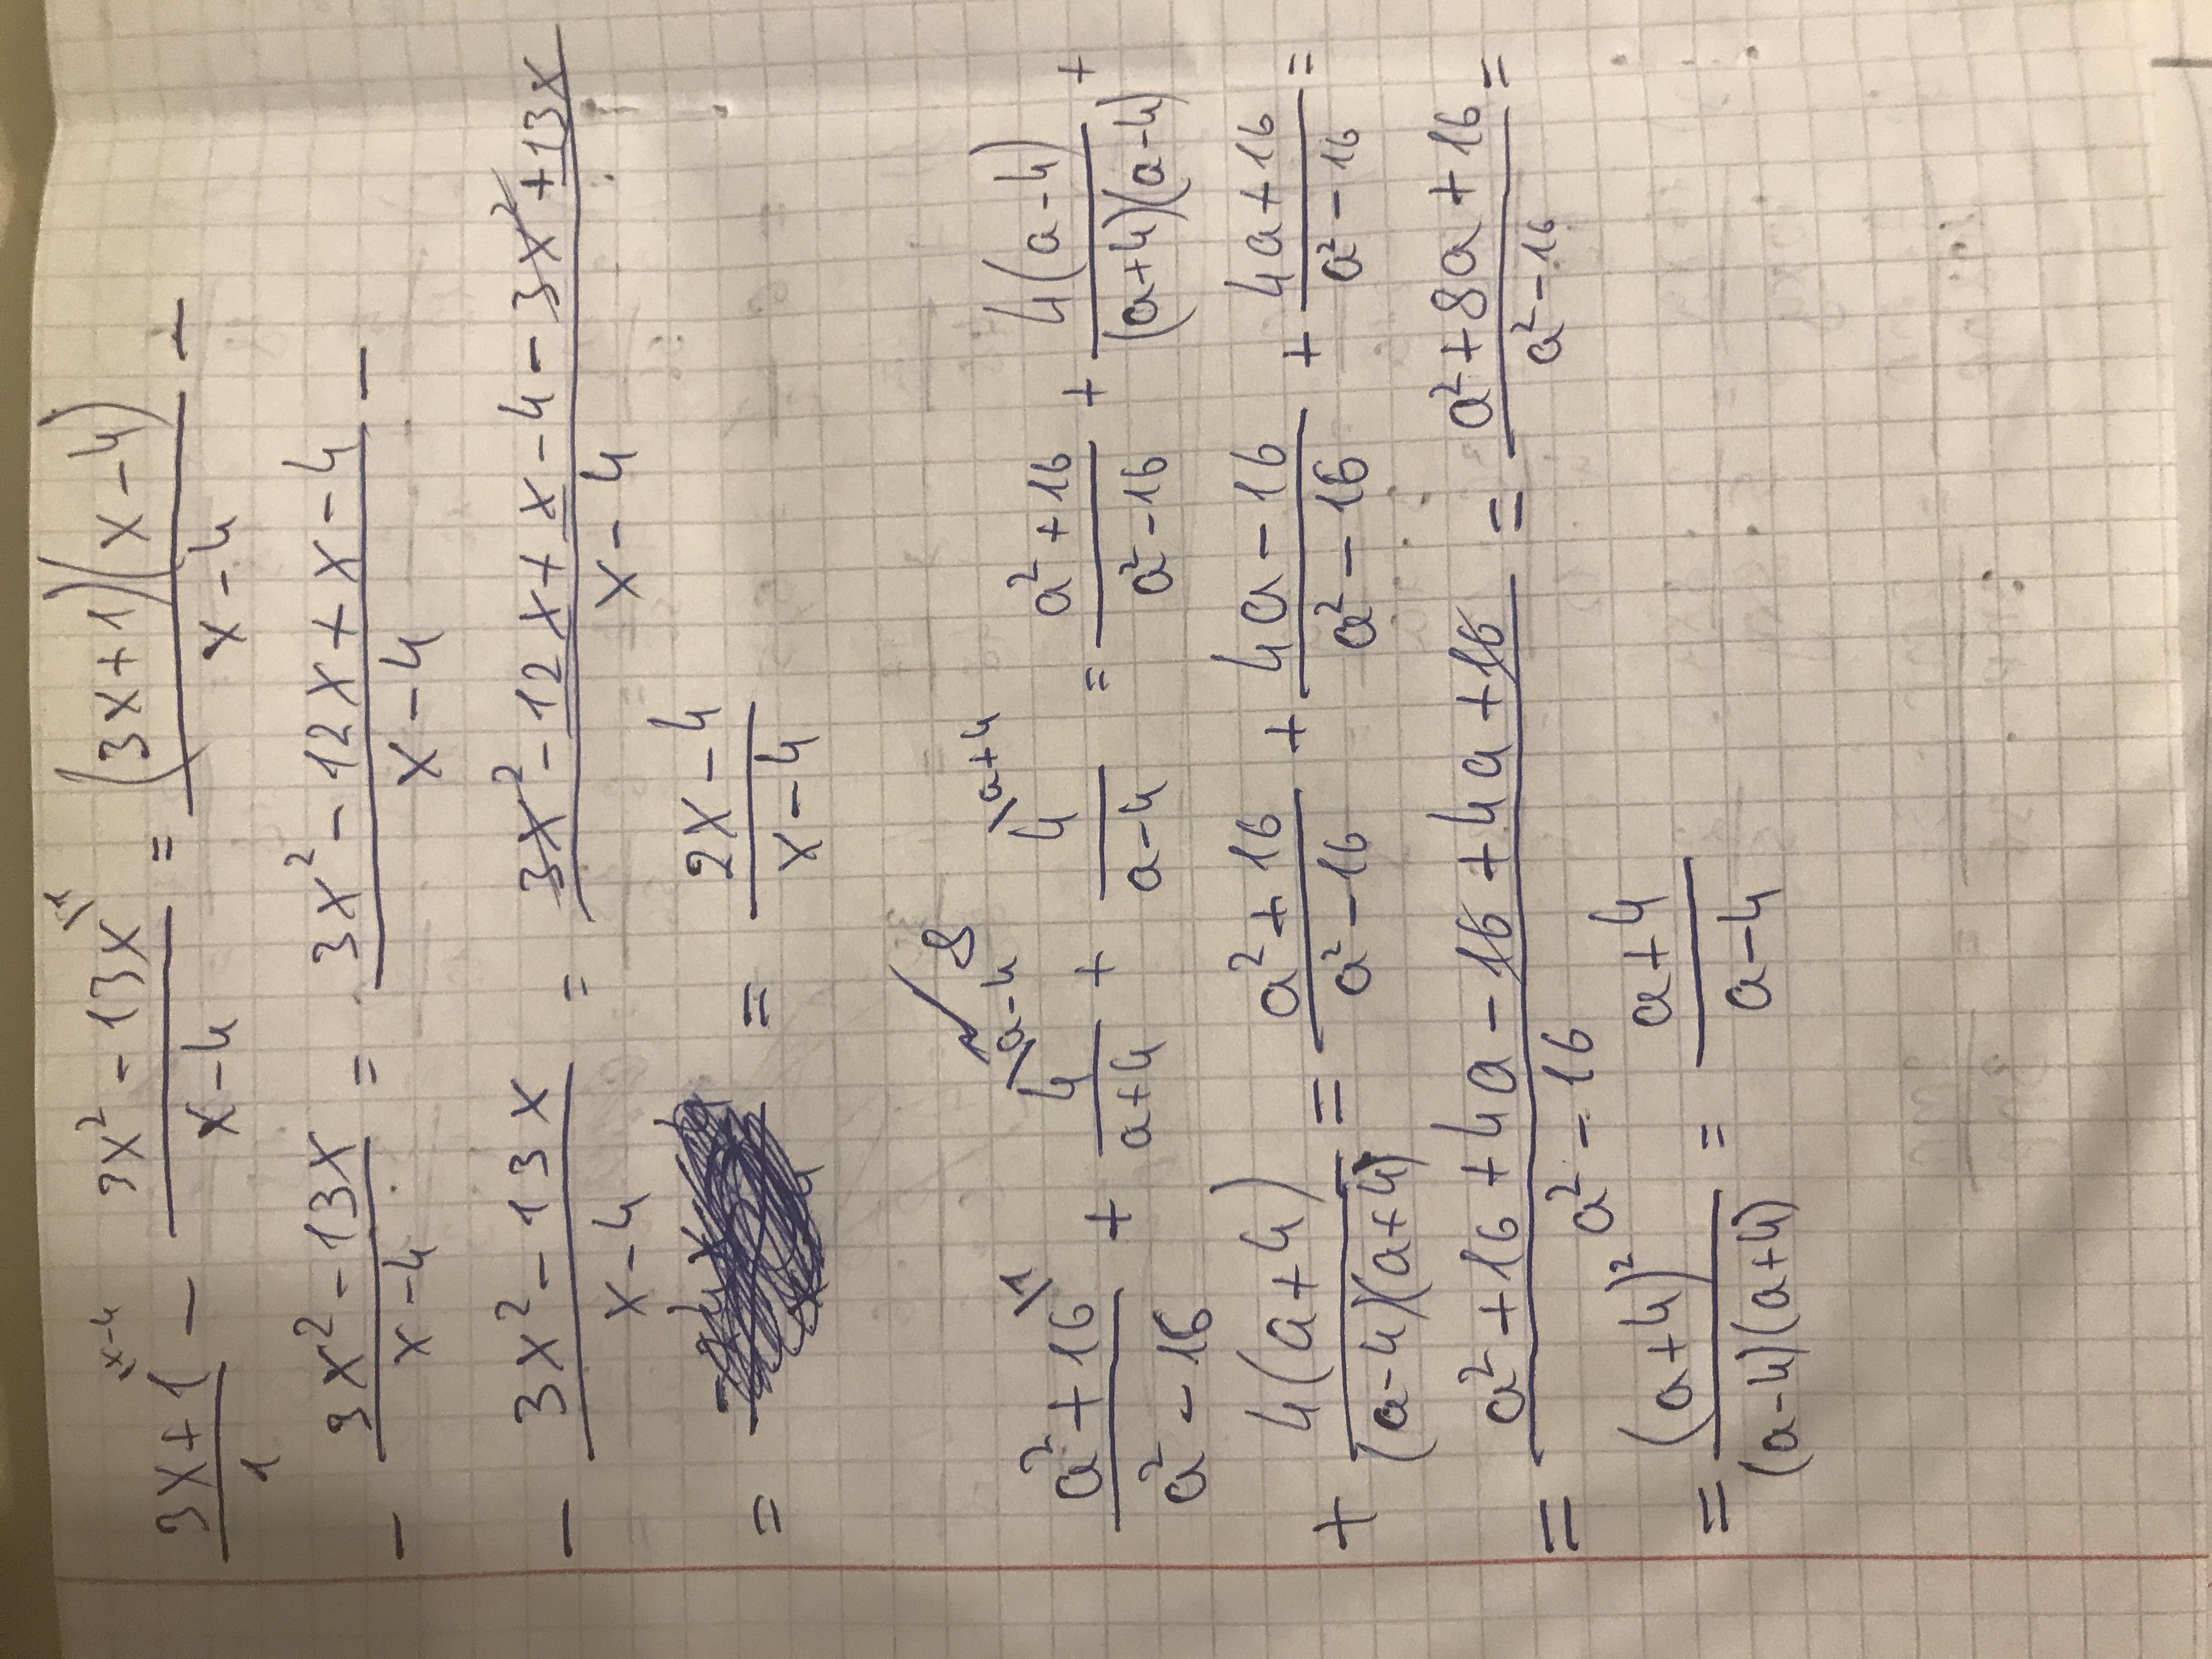 (3x+1)/1 \x-4 - (3x² - 13x)/(x-4) \1 = ((3x+1)(x-4))/(x-4) -
- (3x² - 13x)/(x-4) = (3x² - 12x + x - 4)/(x-4) -
- (3x² - 13x)/(x-4) = (3x² - 12x + x - 4 - 3x² + 13x)/(x-4)
= = (2x-4)/(x-4)
(a²+16)/(a²-16) \1 + 4/(a+4) \a-4 + 4/(a-4) \a+4 = (a²+16)/(a²-16) + (4(a-4))/((a+4)(a-4)) +
+ (4(a+4))/((a-4)(a+4)) = (a²+16)/(a²-16) + (4a-16)/(a²-16) + (4a+16)/(a²-16) =
= (a²+16+4a-16+4a+16)/(a²-16) = (a²+8a+16)/(a²-16) =
= (a+4)²/((a-4)(a+4)) = (a+4)/(a-4)